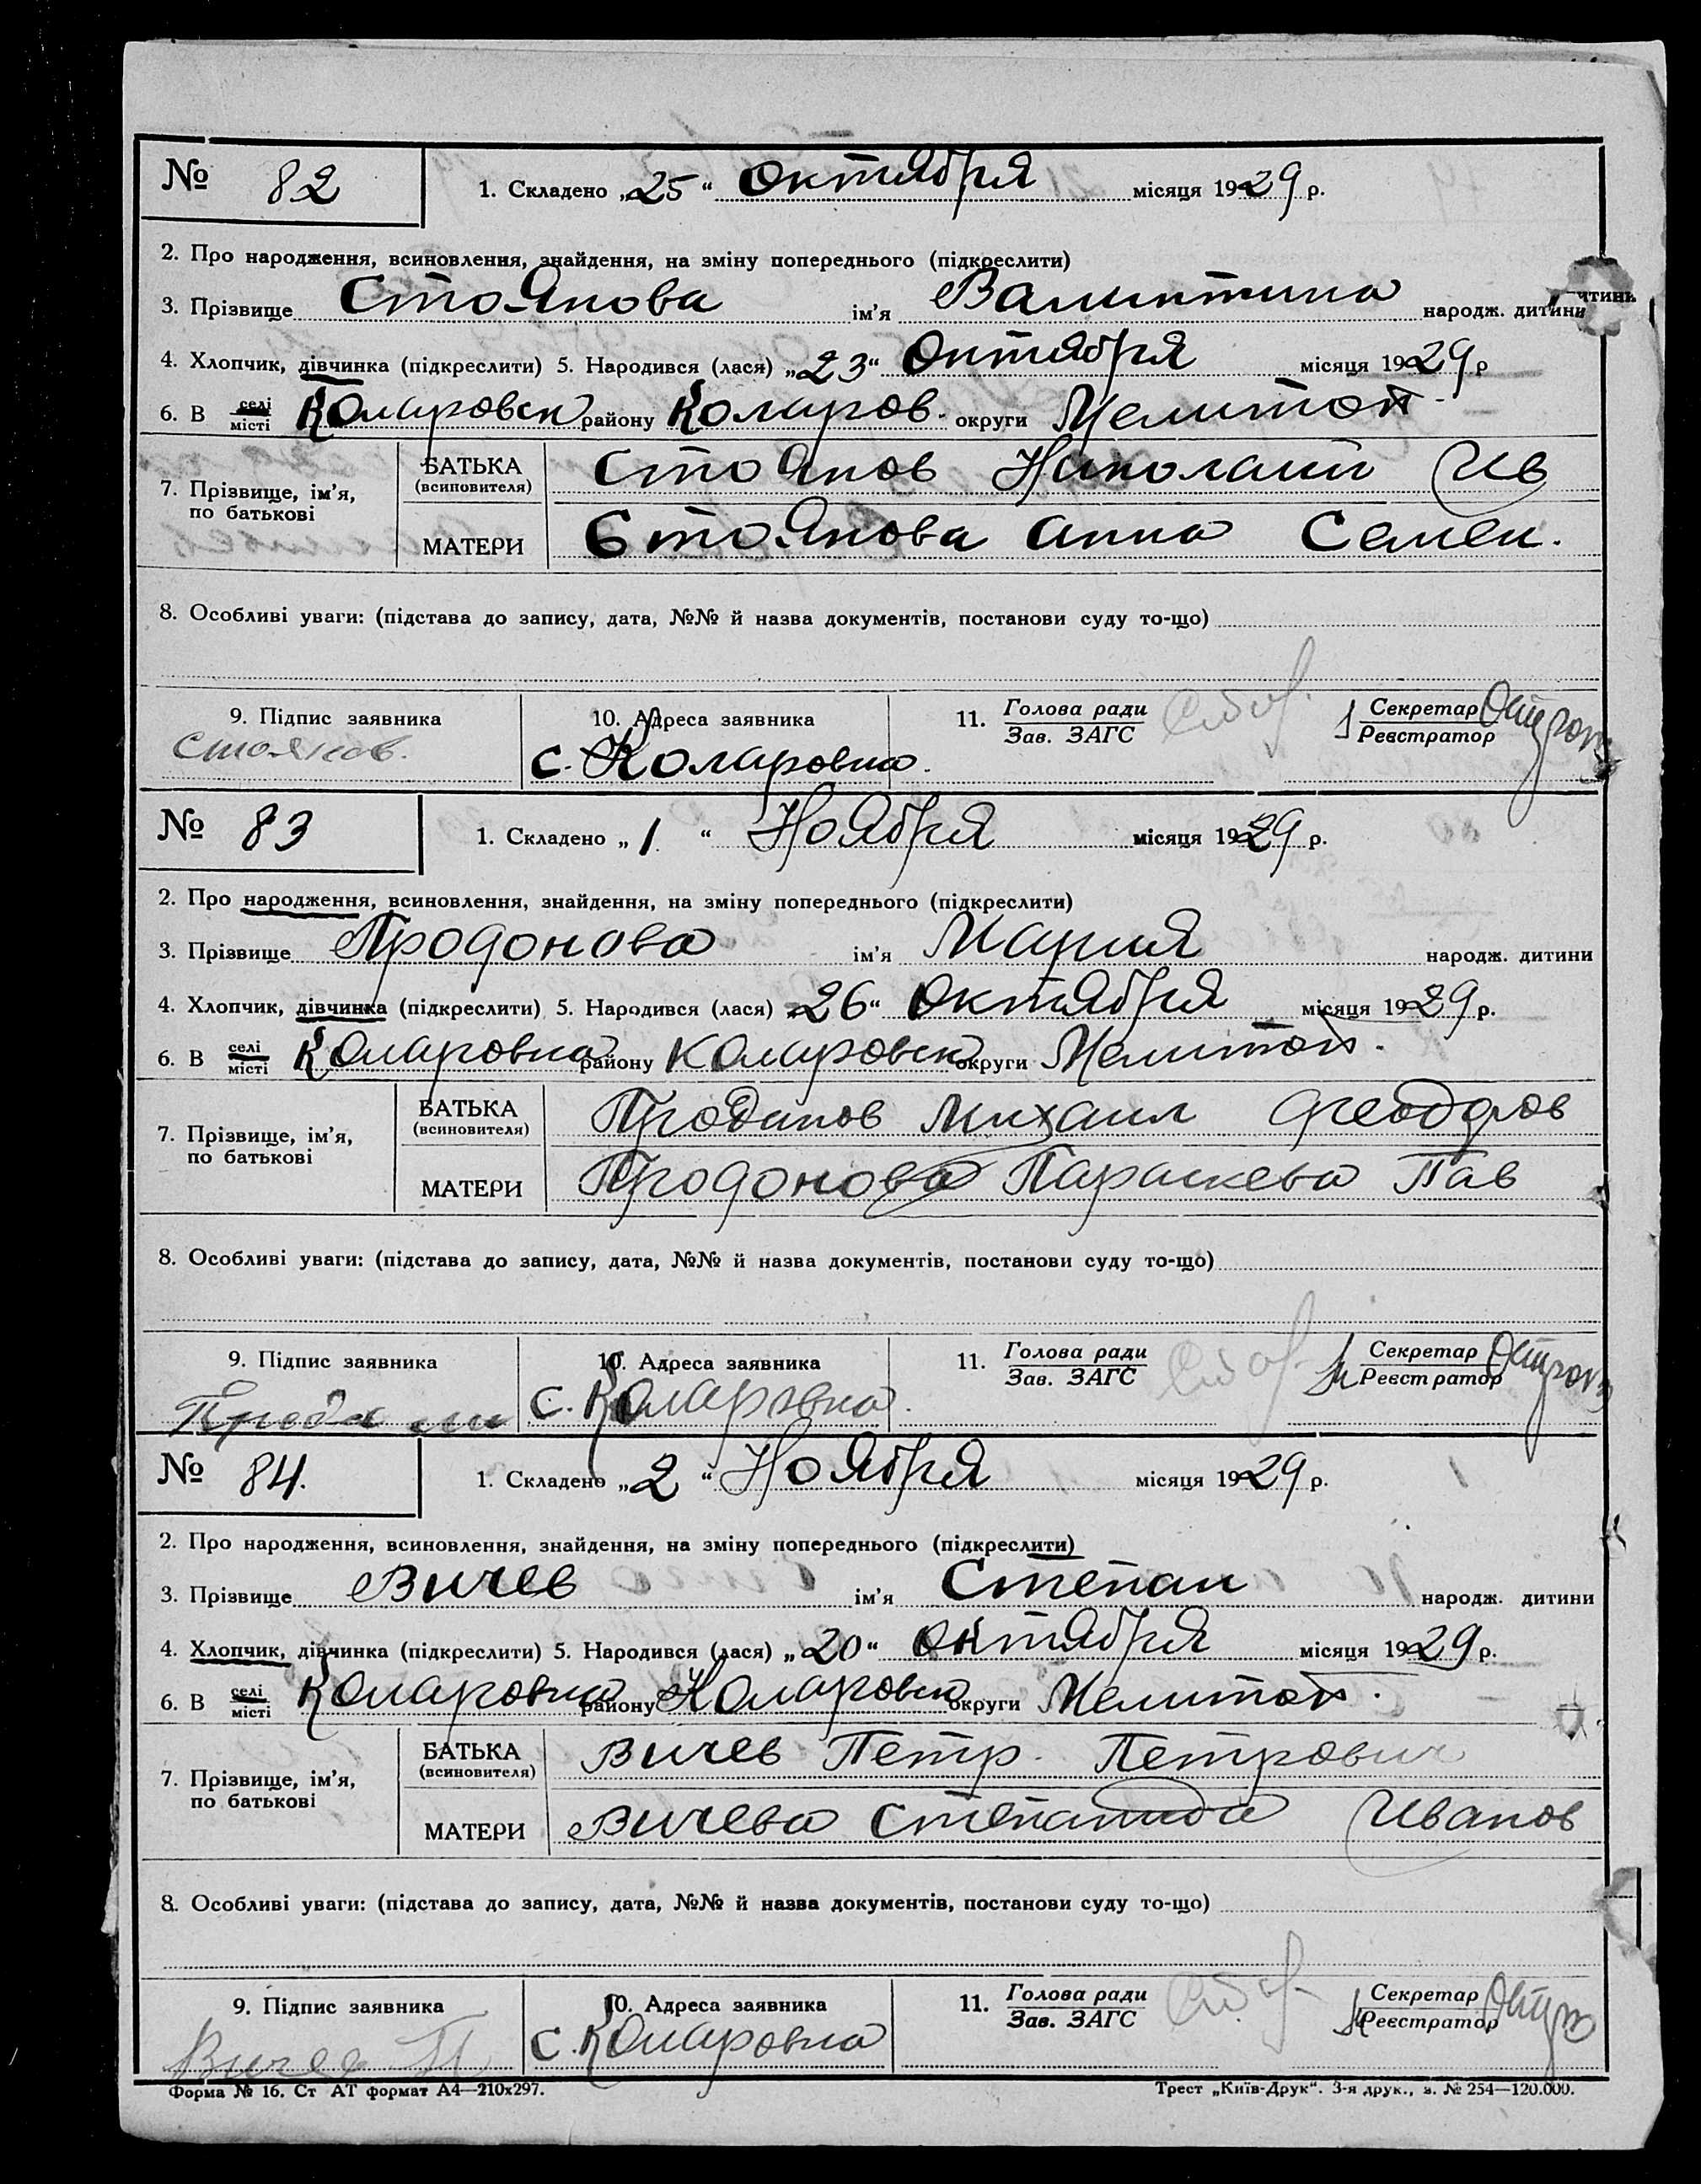 № 82 1. Складено „25“ Октября місяця 1929 р.
2. Про народження, всиновлення, знайдення, на зміну попереднього (підкреслити)
3. Прізвище Стоянова ім'я Валинтина народж. дитини
4. Хлопчик, дівчинка (підкреслити) 5. Народився (лася) „23“ Октября місяця 1929 р
6. В селі місті Коларовск району Коларов. округи Мелитоп
7. Прізвище, ім'я, по батькові
БАТЬКА (всиновителя) Стоянов Николаий Ив
МАТЕРИ Стоянова Анна Семен.
8. Особливі уваги: (підстава до запису, дата, №№ й назва документів, постанови суду то-що)
9. Підпис заявника 10. Адреса заявника 11. Голова ради Зав. ЗАГС Секретар Реєстратор
Стоянов. с. Коларовка.
№ 83 1. Складено „1“ Ноября місяця 1929 р.
2. Про народження, всиновлення, знайдення, на зміну попереднього (підкреслити)
3. Прізвище Продонова ім'я Мария народж. дитини
4. Хлопчик, дівчинка (підкреслити) 5. Народився (лася) „26“ Октября місяця 1929 р.
6. В селі місті Коларовка району Коларовск округи Мелитоп.
7. Прізвище, ім'я, по батькові
БАТЬКА (всиновителя) Проданов Михаил Феодоров
МАТЕРИ Продонова Параскева Пав
8. Особливі уваги: (підстава до запису, дата, №№ й назва документів, постанови суду то-що)
9. Підпис заявника 10. Адреса заявника 11. Голова ради Зав. ЗАГС Секретар Реєстратор
с. Коларовка.
№ 84. 1. Складено „2“ Ноября місяця 1929 р.
2. Про народження, всиновлення, знайдення, на зміну попереднього (підкреслити)
3. Прізвище Вичев ім'я Степан народж. дитини
4. Хлопчик, дівчинка (підкреслити) 5. Народився (лася) „20“ октября місяця 1929 р.
6. В селі місті Коларовка району Коларовск округи Мелитоп.
7. Прізвище, ім'я, по батькові
БАТЬКА (всиновителя) Вичев Петр. Петрович
МАТЕРИ Вичева Степанида Иванов
8. Особливі уваги: (підстава до запису, дата, №№ й назва документів, постанови суду то-що)
9. Підпис заявника 10. Адреса заявника 11. Голова ради Зав. ЗАГС Секретар Реєстратор
Вичев П с. Коларовка
Форма № 16. Ст АТ формат А4—210х297. Трест „Київ-Друк“. 3-я друк., з. № 254—120.000.